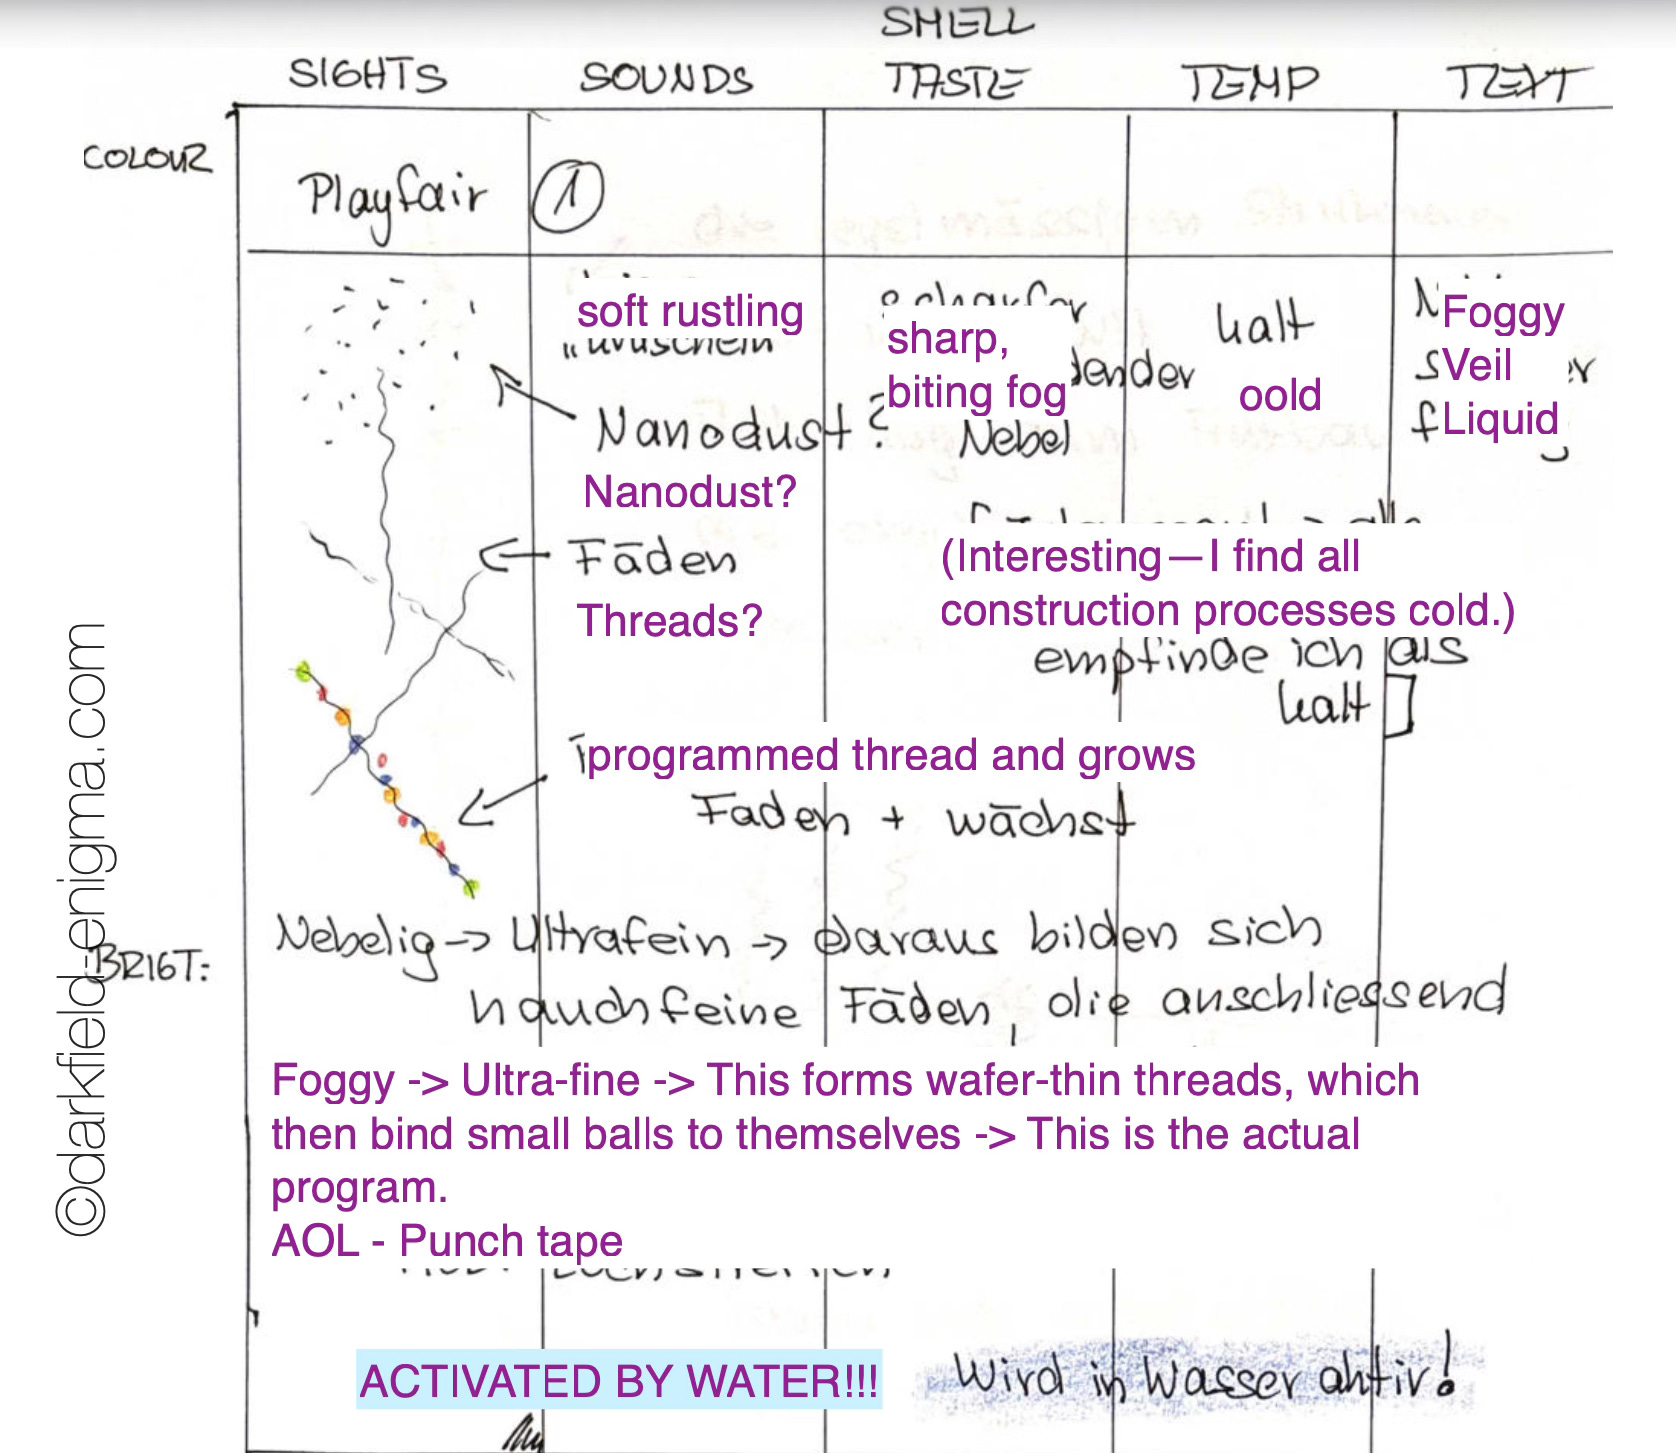 SMELL
SIGHTS SOUNDS TASTE TEMP TEXT
COLOUR
Playfair 1
soft rustling
sharp,
biting fog
Nebel
kalt
oold
Foggy
Veil
Liquid
Nanodust?
Nanodust?
Fāden
Threads?
(Interesting—I find all
construction processes cold.)
empfinde ich als
kalt]
programmed thread and grows
Faden + wāchst
BRIGT:
Nebelig -> Ultrafein -> Daraus bilden sich
hauchfeine Fāden, die anschliessend
Foggy -> Ultra-fine -> This forms wafer-thin threads, which
then bind small balls to themselves -> This is the actual
program.
AOL - Punch tape
ACTIVATED BY WATER!!!
Wird in Wasser aktiv!
©darkfield-enigma.com